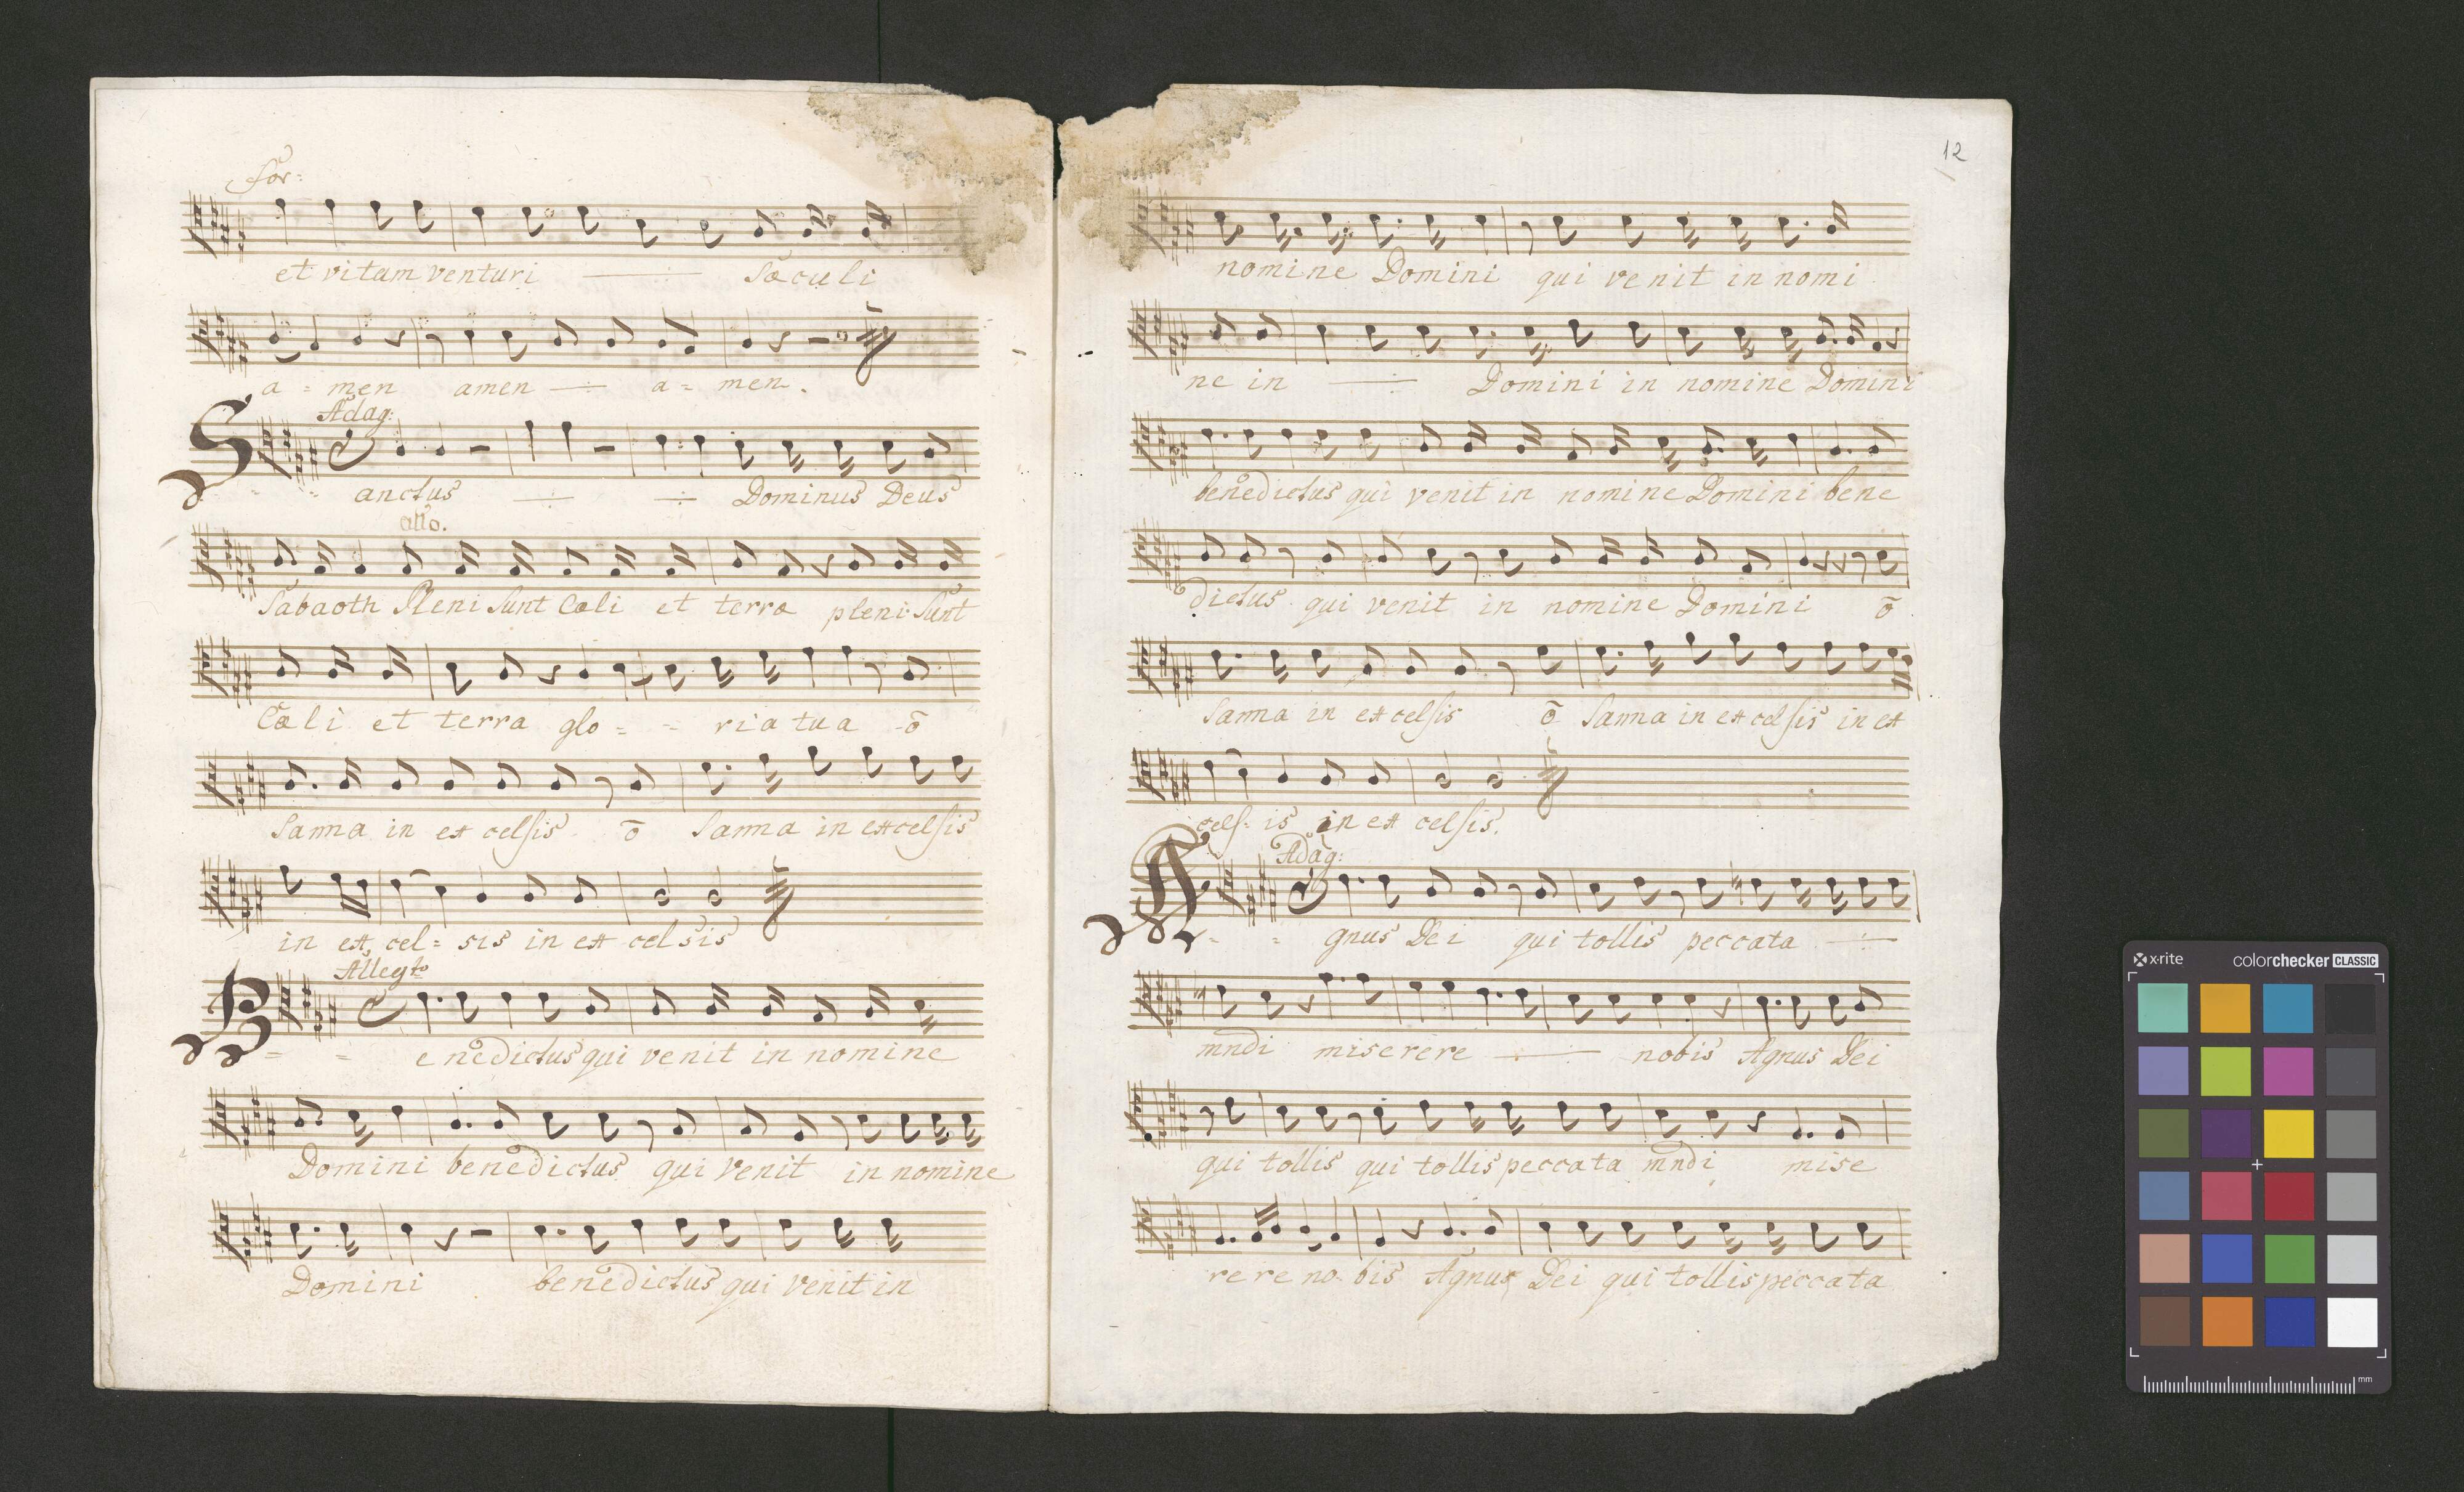 for:
et vitam venturi sæculi
a = men amen a = men.
Adag:
Sanctus Dominus Deus
allo.
Sabaoth Pleni sunt Cæli et terra pleni sunt
Cæli et terra glo = = ria tua ō
sanna in excelsis ō sanna in excelsis
in ex cel = sis in ex celsis
Allegto
B = = enedictus qui venit in nomine
Domini benedictus qui venit in nomine
Domini benedictus qui venit in
12
nomine Domini qui venit in nomi
ne in Domini in nomine Domini
benedictus qui venit in nomine Domini bene
dictus qui venit in nomine Domini ō
sanna in excelsis ō sanna in excelsis in ex
cels= is in ex celsis.
Adag:
A = = gnus Dei qui tollis peccata
mndi miserere nobis Agnus Dei
qui tollis qui tollis peccata mndi mise
rere no. bis Agnus Dei qui tollis peccata
x·rite colorchecker CLASSIC
mm